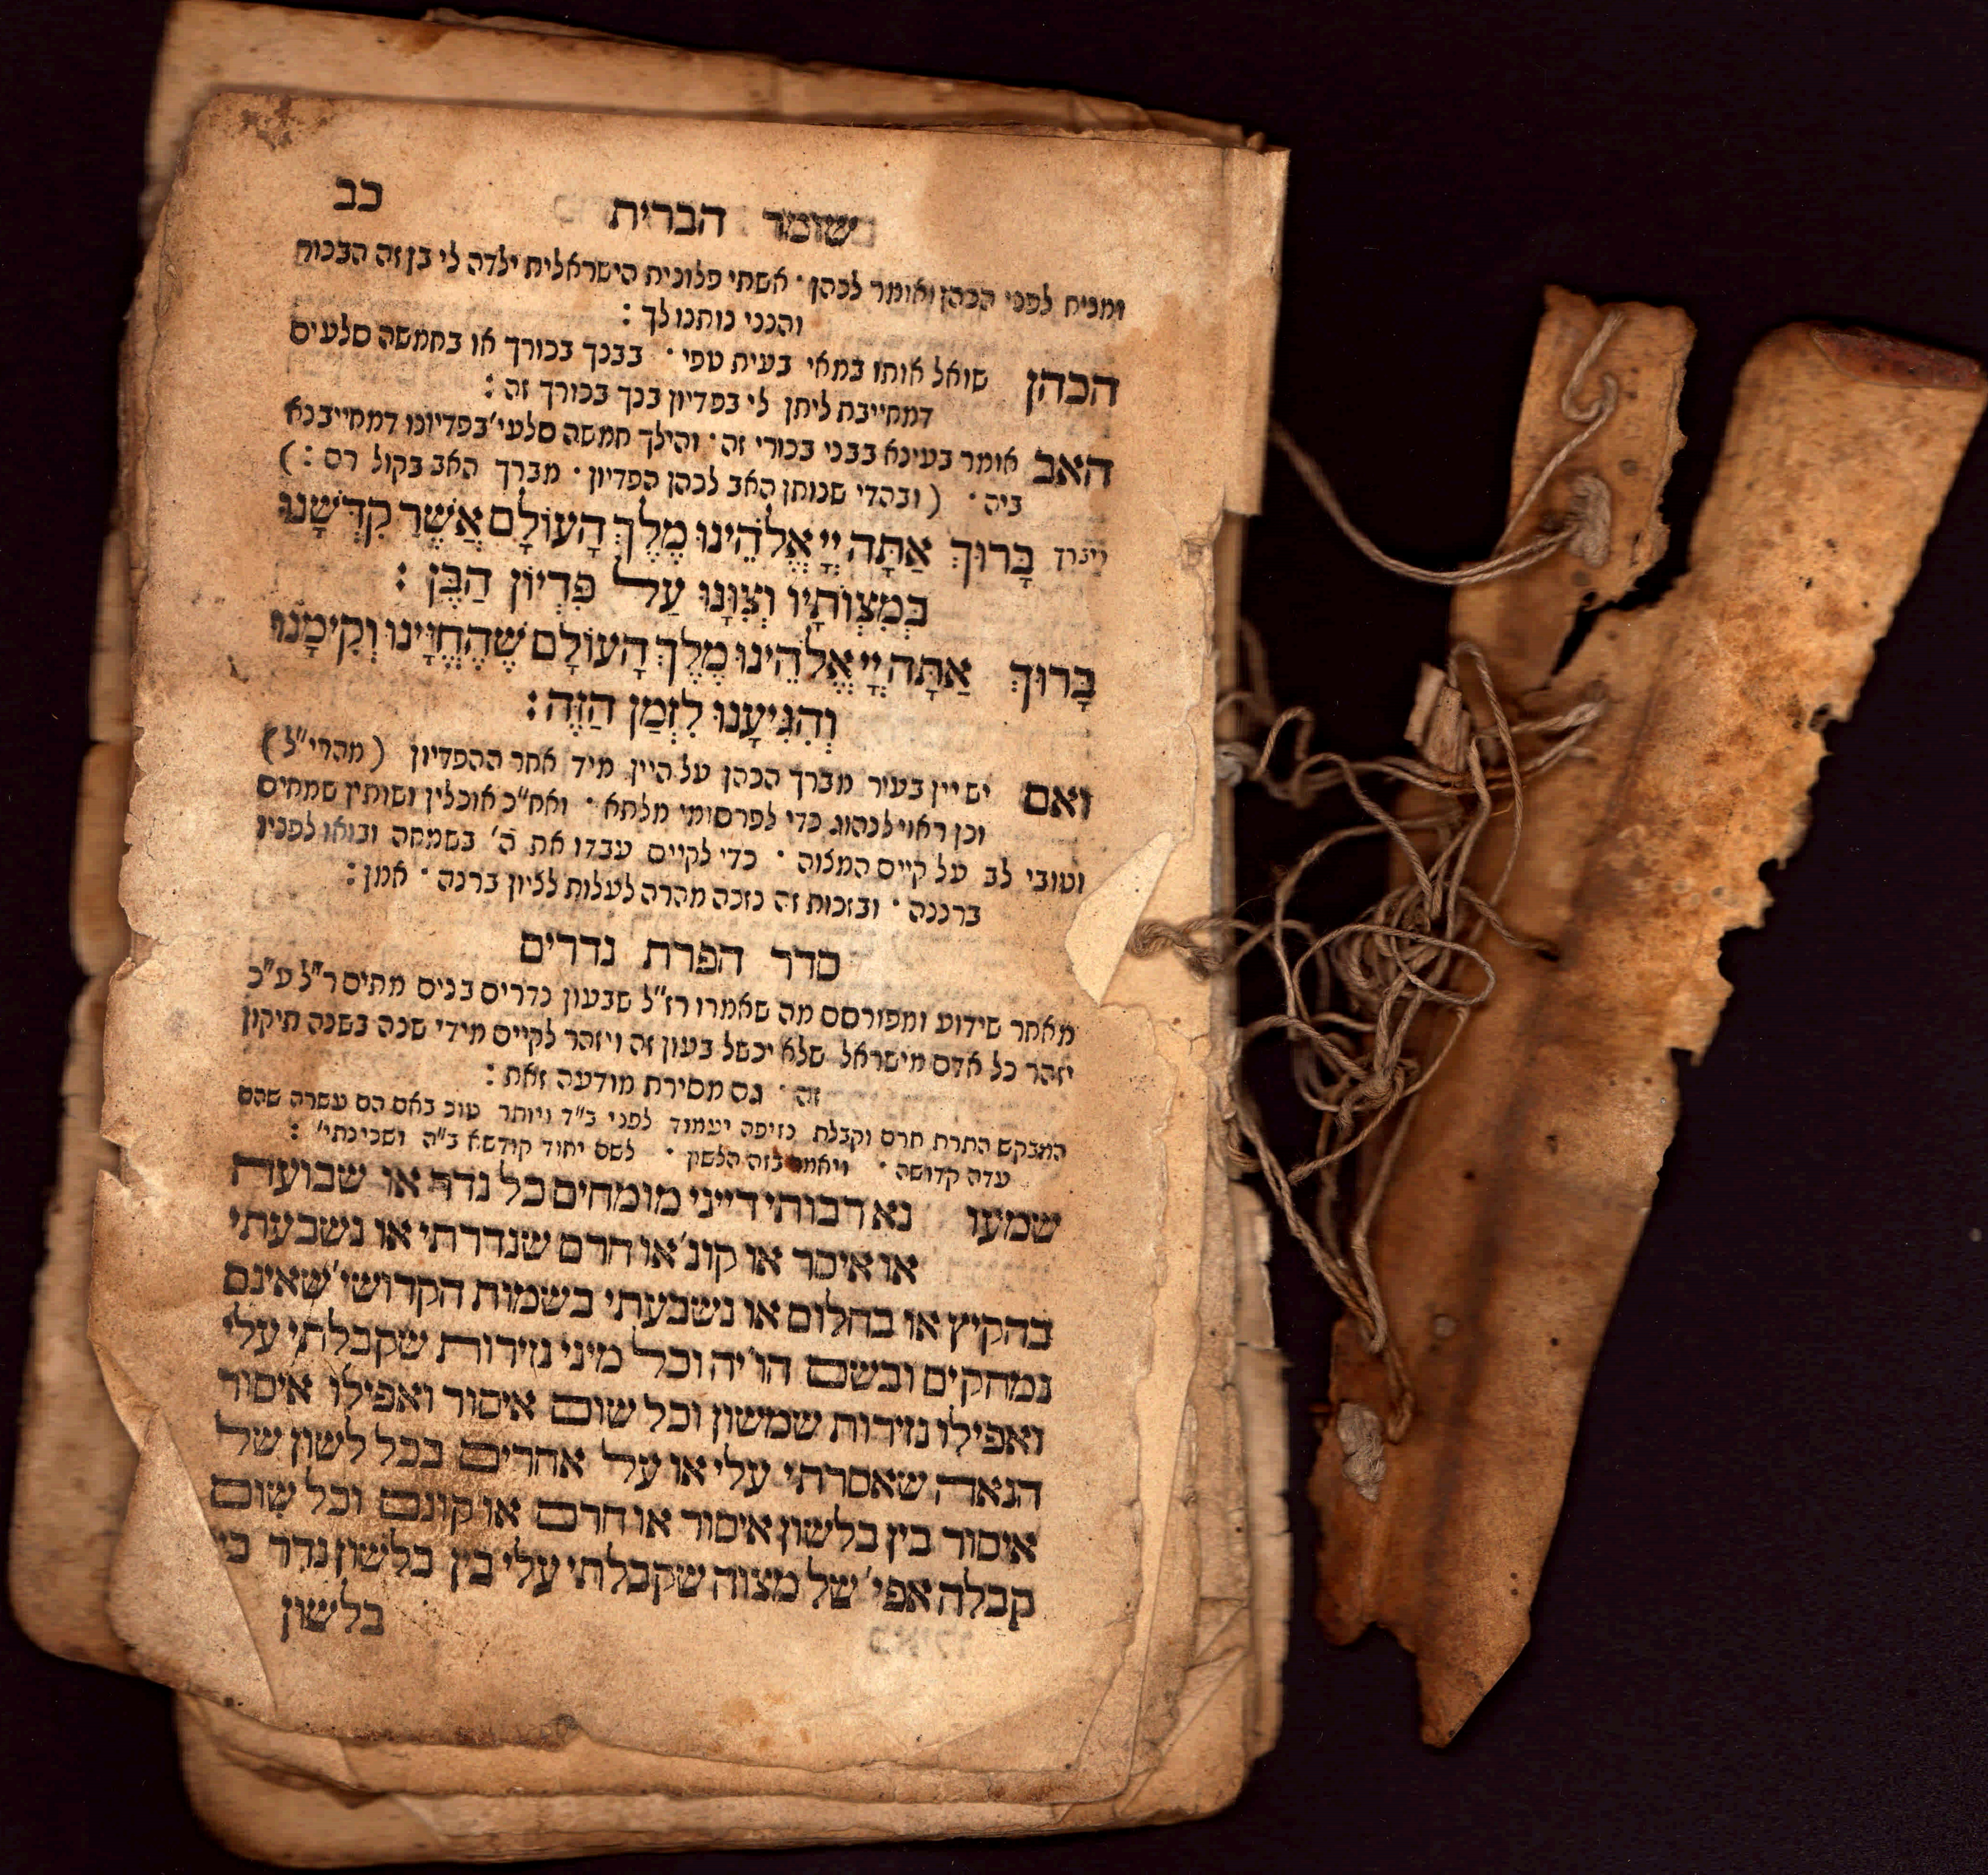 כב
שומר הברית
ומניח לפני הכהן ואומר לכהן · אשתי פלונית הישראלית ילדה לי בן זה הבכור
והנני נותנו לך :
הכהן שואל אותו במאי בעית טפי · בבנך בכורך או בחמשה סלעים
דמחייבת ליתן לי בפדיון בנך בכורך זה :
האב אומר בעינא בבני בכורי זה · והילך חמשה סלעי' בפדיונו דמחייבנא
ביה · ( ובהדי שנותן האב לכהן הפדיון · מברך האב בקול רם : )
בָּרוּךְ אַתָּה יְיָ אֱלֹהֵינוּ מֶלֶךְ הָעוֹלָם אֲשֶׁר קִדְּשָׁנוּ
בְּמִצְוֹתָיו וְצִוָּנוּ עַל פִּדְיוֹן הַבֵּן :
בָּרוּךְ אַתָּה יְיָ אֱלֹהֵינוּ מֶלֶךְ הָעוֹלָם שֶׁהֶחֱיָינוּ וְקִיְמָנוּ
וְהִגִּיעָנוּ לִזְמַן הַזֶּה :
ואם יש יין בעיר מברך הכהן על היין מיד אחר ההפדיון ( מהרי"ל )
וכן ראוי לנהוג כדי לפרסומי מלתא · ואח"כ אוכלין ושותין שמחים
וטובי לב על קיים המצוה · כדי לקיים עבדו את ה' בשמחה ובואו לפניו
ברננה · ובזכות זה נזכה מהרה לעלות לציון ברנה · אמן :
סדר הפרת נדרים
מאחר שידוע ומפורסם מה שאמרו רז"ל שבעון נדרים בנים מתים ר"ל ע"כ
יזהר כל אדם מישראל שלא יכשל בעון זה ויזהר לקיים מידי שנה בשנה תיקון
זה · גם מסירת מודעה זאת :
המבקש התרת חרם וקבלת נזיפה יעמוד לפני ב"ד ויותר טוב באם הם עשרה שהם
עדה קדושה · ויאמר בזה הלשון · לשם יחוד קודשא ב"ה ושכינתי' :
שמעו נא רבותי דייני מומחים כל נדר או שבועה
או איסר או קונ' או חרם שנדרתי או נשבעתי
בהקיץ או בחלום או נשבעתי בשמות הקדושי' שאינם
נמחקים ובשם הו'יה וכל מיני נזירות שקבלתי עלי
ואפילו נזירות שמשון וכל שום איסור ואפילו איסור
הנאה שאסרתי עלי או על אחרים בכל לשון של
איסור בין בלשון איסור או חרם או קונם וכל שום
קבלה אפי' של מצוה שקבלתי עלי בין בלשון נדר בי
בלשון